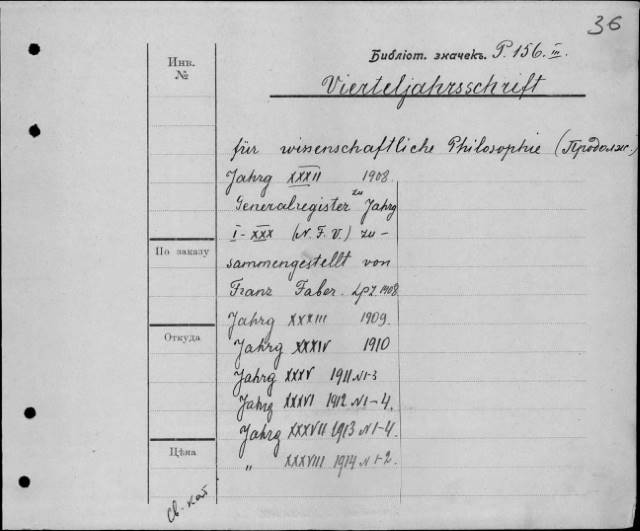 36
Библіот. значекъ. P. 156. III.
Vierteljahrsschrift
Инв.
№
für wissenschaftliche Philosophie (Продолж.)
Jahrg XXXII 1908.
Generalregister zu Jahrg
I-XXX (N. F. V.) zu-
sammengestellt von
Franz Faber. Lpz. 1908
Jahrg XXXIII 1909.
Jahrg XXXIV 1910
Jahrg XXXV 1911 N 1-3
Jahrg XXXVI 1912 N 1-4.
Jahrg XXXVII 1913 N 1-4.
„ XXXVIII 1914 N 1-2.
По заказу
Откуда
Цѣна
Св-кат